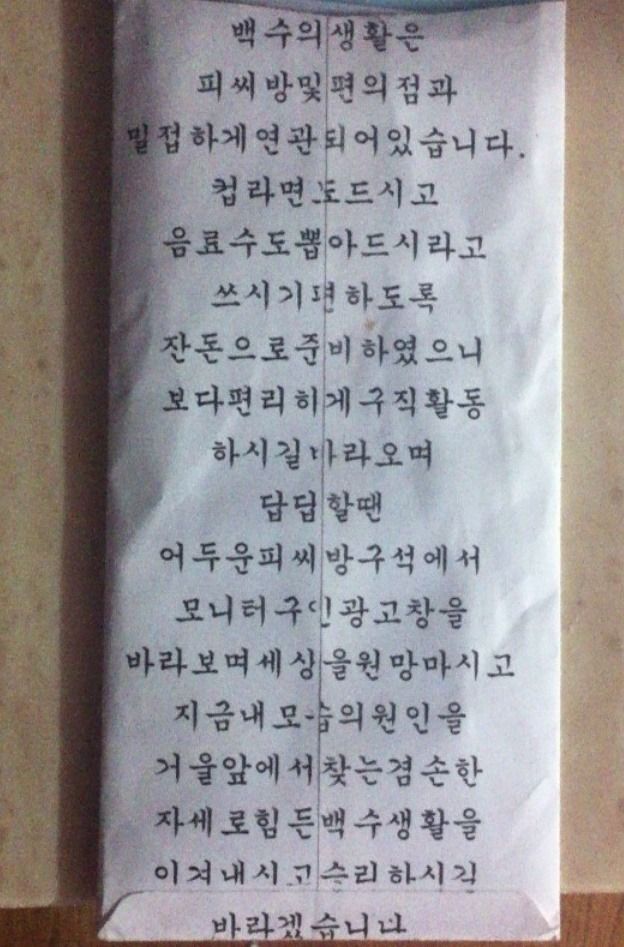 백수의생활은
피씨방및편의점과
밀접하게연관되어있습니다.
컵라면도드시고
음료수도뽑아드시라고
쓰시기편하도록
잔돈으로준비하였으니
보다편리하게구직활동
하시길바라오며
답답할땐
어두운피씨방구석에서
모니터구인광고창을
바라보며세상을원망마시고
지금내모습의원인을
거울앞에서찾는겸손한
자세로힘든백수생활을
이겨내시고승리하시길
바라겠습니다